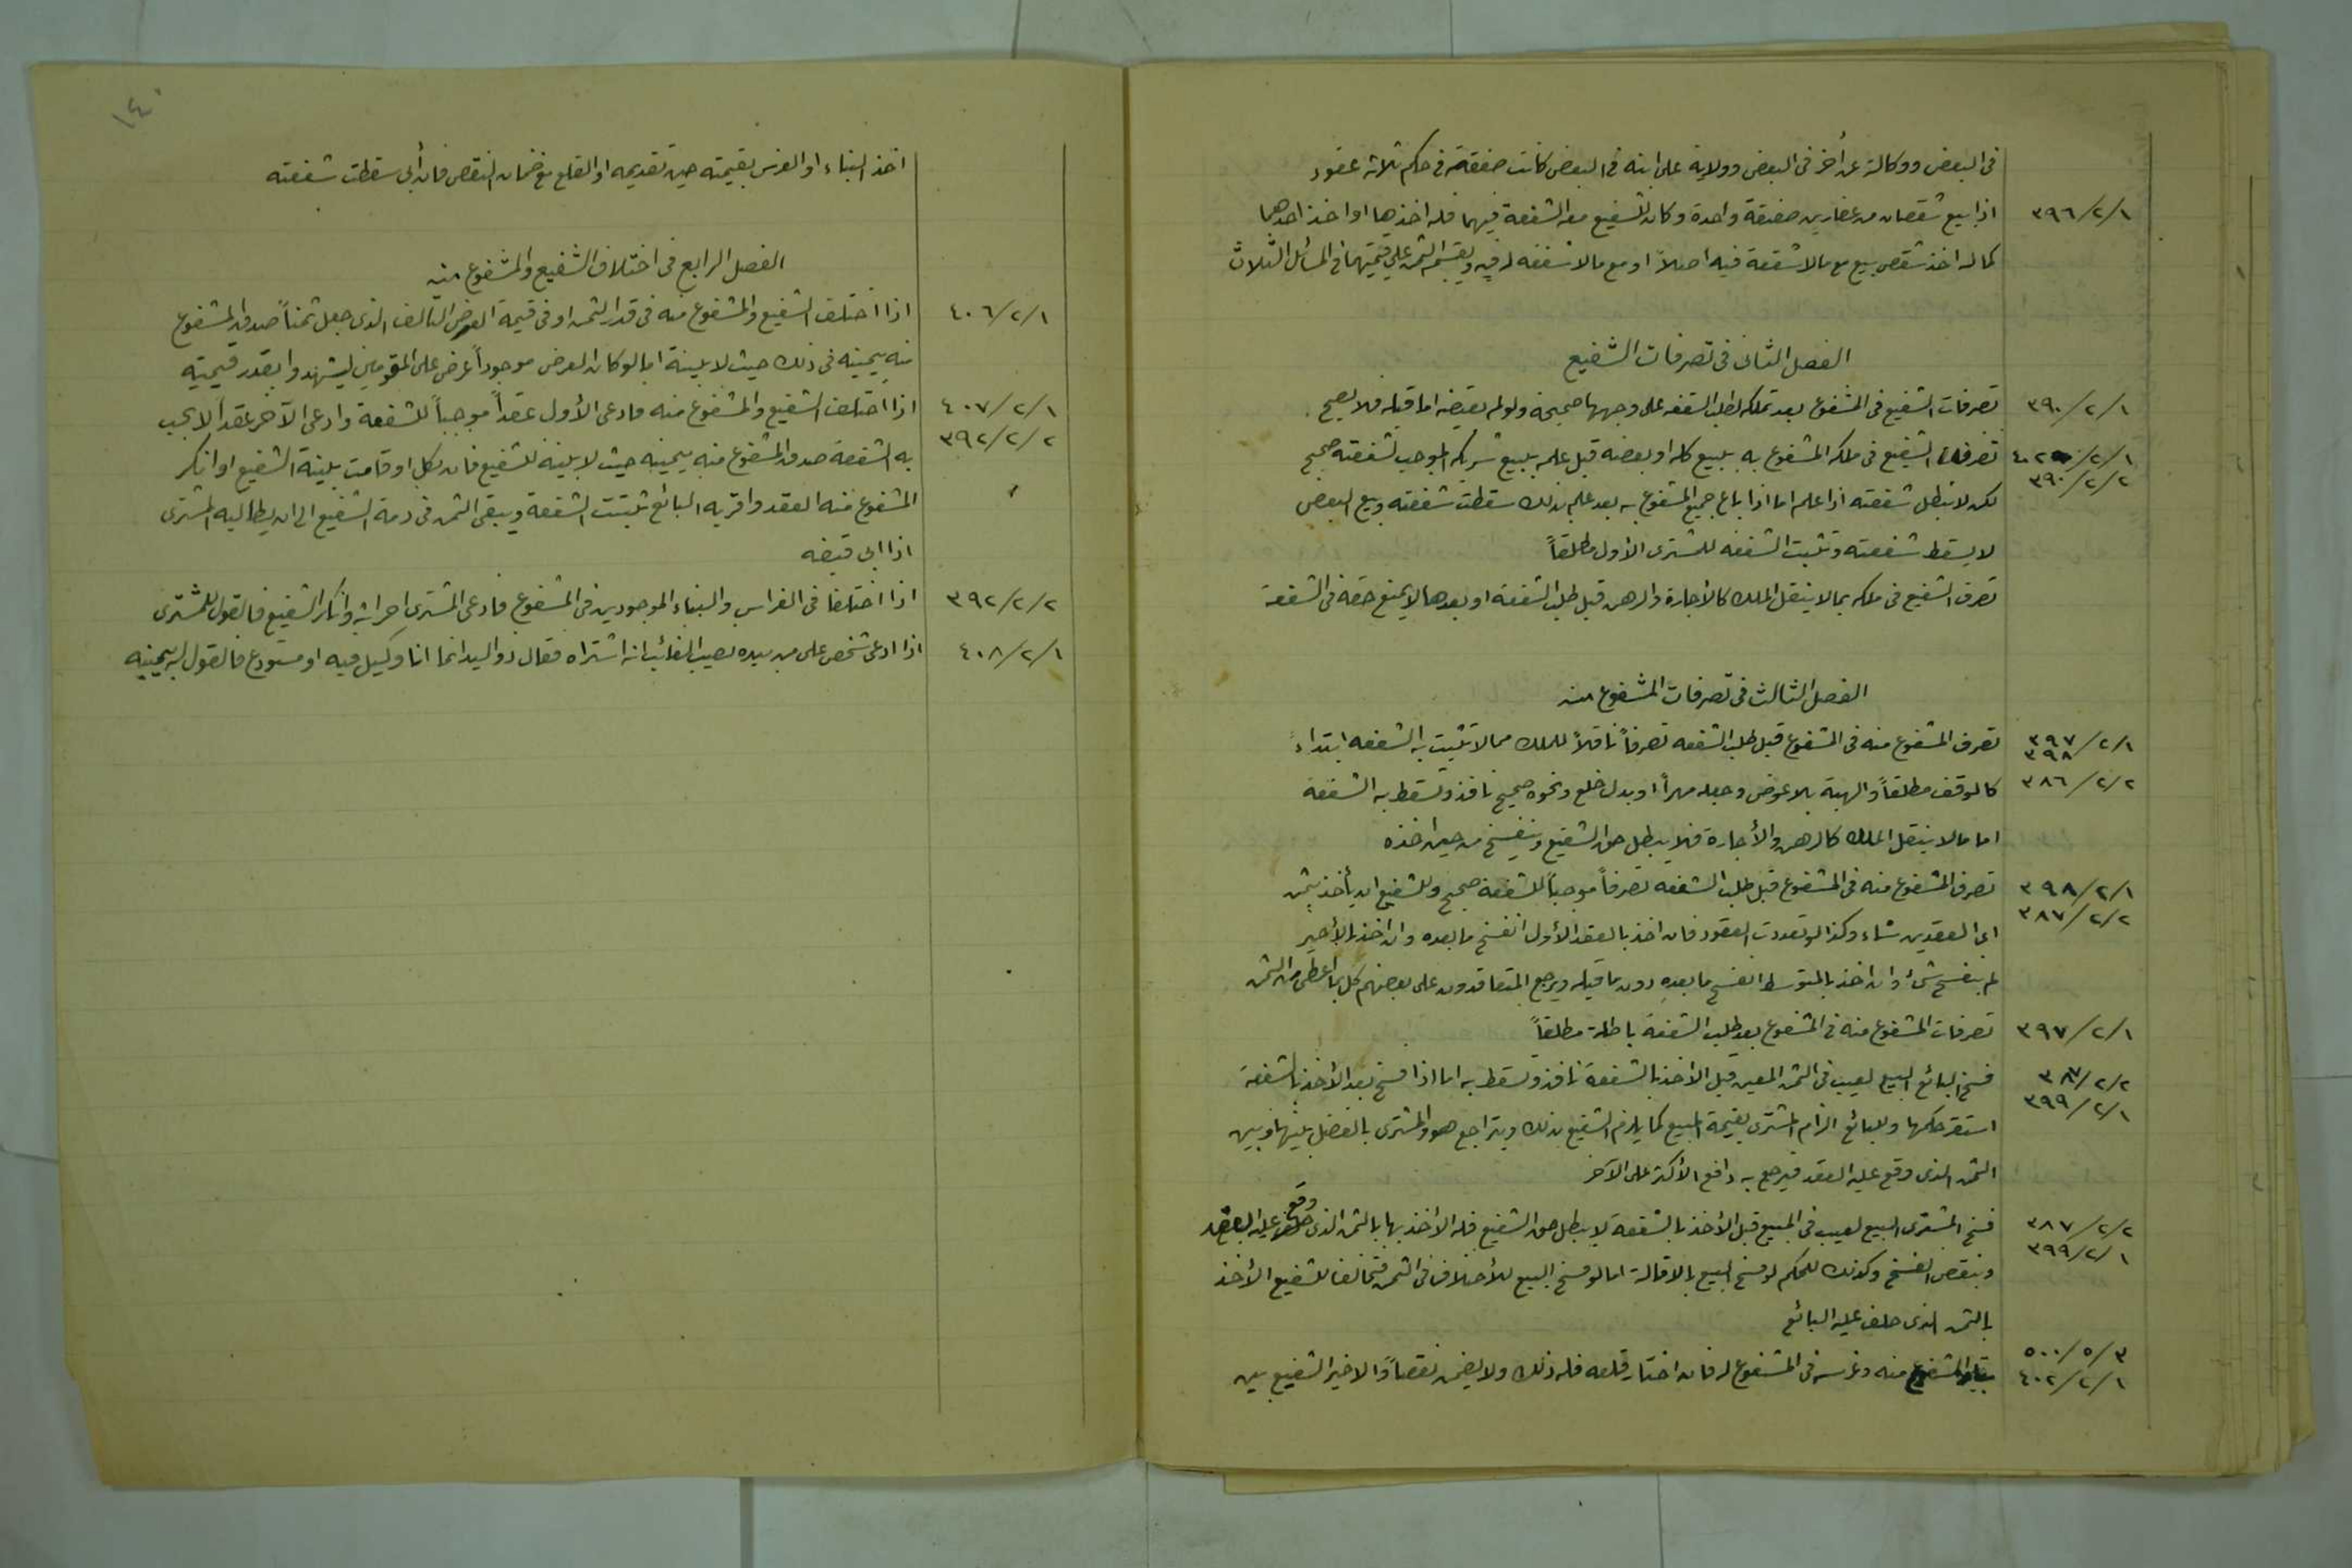 فى البعض ووكالة عن أخر فى البعض وولاية على ابنه فى البعض كانت صفقة فى حكم ثلاثة عقود
٣٩٦/٢/١ اذا بيع شقصان من عقارين صفقة واحدة وكان للشفيع حق الشفعة فيهما فله اخذهما او اخذ احدهما
كما له اخذ شقص بيع مع مالا شفعة فيه اصلاً او مع مالا شفعة له فيه ويقسم الثمن على قيمتهما فى المسائل الثلاث
الفصل الثانى فى تصرفات الشفيع
٣٩٠/٢/١ تصرفات الشفيع فى المشفوع بعد تملكه بطلب الشفعة على وجهها صحيحة ولو لم يقبضه اما قبله فلا يصح.
٣٩٠/٢/٢ تصرفات الشفيع فى ملكه المشفوع به ببيع كله او بعضه قبل علمه ببيع شريكه الموجب لشفعته صحيح
لكن لا تبطل شفعته اذا علم اما اذا باع جميع المشفوع به بعد علمه بذلك سقطت شفعته وبيع البعض
لا يسقط شفعته وتثبت الشفعة للمشترى الأول مطلقاً
تصرف الشفيع فى ملكه بما لا ينقل الملك كالأجارة والرهن قبل طلب الشفعة او بعدها لا يمنع حقه فى الشفعة
الفصل الثالث فى تصرفات المشفوع منه
٣٩٧/٢/١ ٣٩٨ تصرف المشفوع منه فى المشفوع قبل طلب الشفعة تصرفاً ناقلاً للملك مما لا تثبت به الشفعة ابتداءً
٣٨٦/٢/٢ كالوقف مطلقاً والهبة بلا عوض وجعله مهراً او بدل خلع ونحوه صحيح نافذ وتسقط به الشفعة
اما مالا ينقل الملك كالرهن والأجارة فلا يبطل حق الشفيع وينفسخ من حين اخذه
٣٩٨/٢/١ تصرف المشفوع منه فى المشفوع قبل طلب الشفعة تصرفاً موجباً للشفعة صحيح وللشفيع ان يأخذ بثمن
٣٨٧/٢/٢ اى العقدين شاء وكذا لو تعددت العقود فان اخذ بالعقد الأول انفسخ ما بعده وان اخذ بالأخير
لم ينفسخ شئ وان اخذ بالمتوسط انفسخ ما بعده دون ما قبله ويرجع المتعاقدون على بعضهم كل بما اعطى من الثمن
٣٩٧/٢/١ تصرفات المشفوع منه فى المشفوع بعد طلب الشفعة باطلة مطلقاً
٣٨٧/٢/٢ فسخ البائع البيع لعيب فى الثمن المعين قبل الأخذ بالشفعة نافذ وتسقط به اما اذا فسخ بعد الأخذ بالشفعة
٣٩٩/٢/١ استقر حكمها وللبائع الزام المشترى بقيمة المبيع كما يلزم الشفيع بذلك ويتراجع هو والمشترى بالفضل بينها وبين
الثمن الذى وقع عليه العقد فيرجع به دافع الأكثر على الآخر
٣٨٧/٢/٢ فسخ المشترى البيع لعيب فى المبيع قبل الأخذ بالشفعة لا يبطل حق الشفيع فله الأخذ بها بالثمن الذى وقع عليه العقد
٣٩٩/٢/١ وينقض الفسخ وكذلك الحكم لو فسخ البيع بالاقالة اما لو فسخ البيع للأختلاف فى الثمن فتحالفا للشفيع الأخذ
بالثمن الذى حلف عليه البائع
٥٠٠/٥/٣
٤٠٢/٢/١ بناء المشفوع منه وغرسه فى المشفوع له فان اختار قلعه فله ذلك ولا يضمن نقصاً والا خير الشفيع بين
١٤
اخذ البناء او الغرس بقيمته حين تقديمه او القلع مع ضمان النقص فان أبى سقطت شفعته
الفصل الرابع فى اختلاف الشفيع والمشفوع منه
٤٠٦/٢/١ اذا اختلف الشفيع والمشفوع منه فى قدر الثمن او فى قيمة العرض التالف الذى جعل ثمناً صدق المشفوع
منه بيمينه فى ذلك حيث لا بينة اما لو كان العرض موجوداً عرض على المقومين ليشهدوا بقدر قيمته
٤٠٧/٢/١ اذا اختلف الشفيع والمشفوع منه فادعى الأول عقداً موجباً للشفعة وادعى الآخر عقداً لا تجب
٣٩٢/٢/٢ به الشفعة صدق المشفوع منه بيمينه حيث لا بينة للشفيع فان نكل او قامت بينة الشفيع او انكر
المشفوع منه العقد واقر به البائع ثبتت الشفعة ويبقى الثمن فى ذمة الشفيع الى ان يطالبه المشترى
اذا ابى قبضه
٣٩٢/٢/٢ اذا اختلفا فى الغراس والبناء الموجودين فى المشفوع فادعى المشترى احداثه وانكر الشفيع فالقول للمشترى
٤٠٨/٢/١ اذا ادعى شخص على من بيده نصيب الغائب انه اشتراه فقال ذو اليد انما انا وكيل فيه او مستودع فالقول له بيمينه